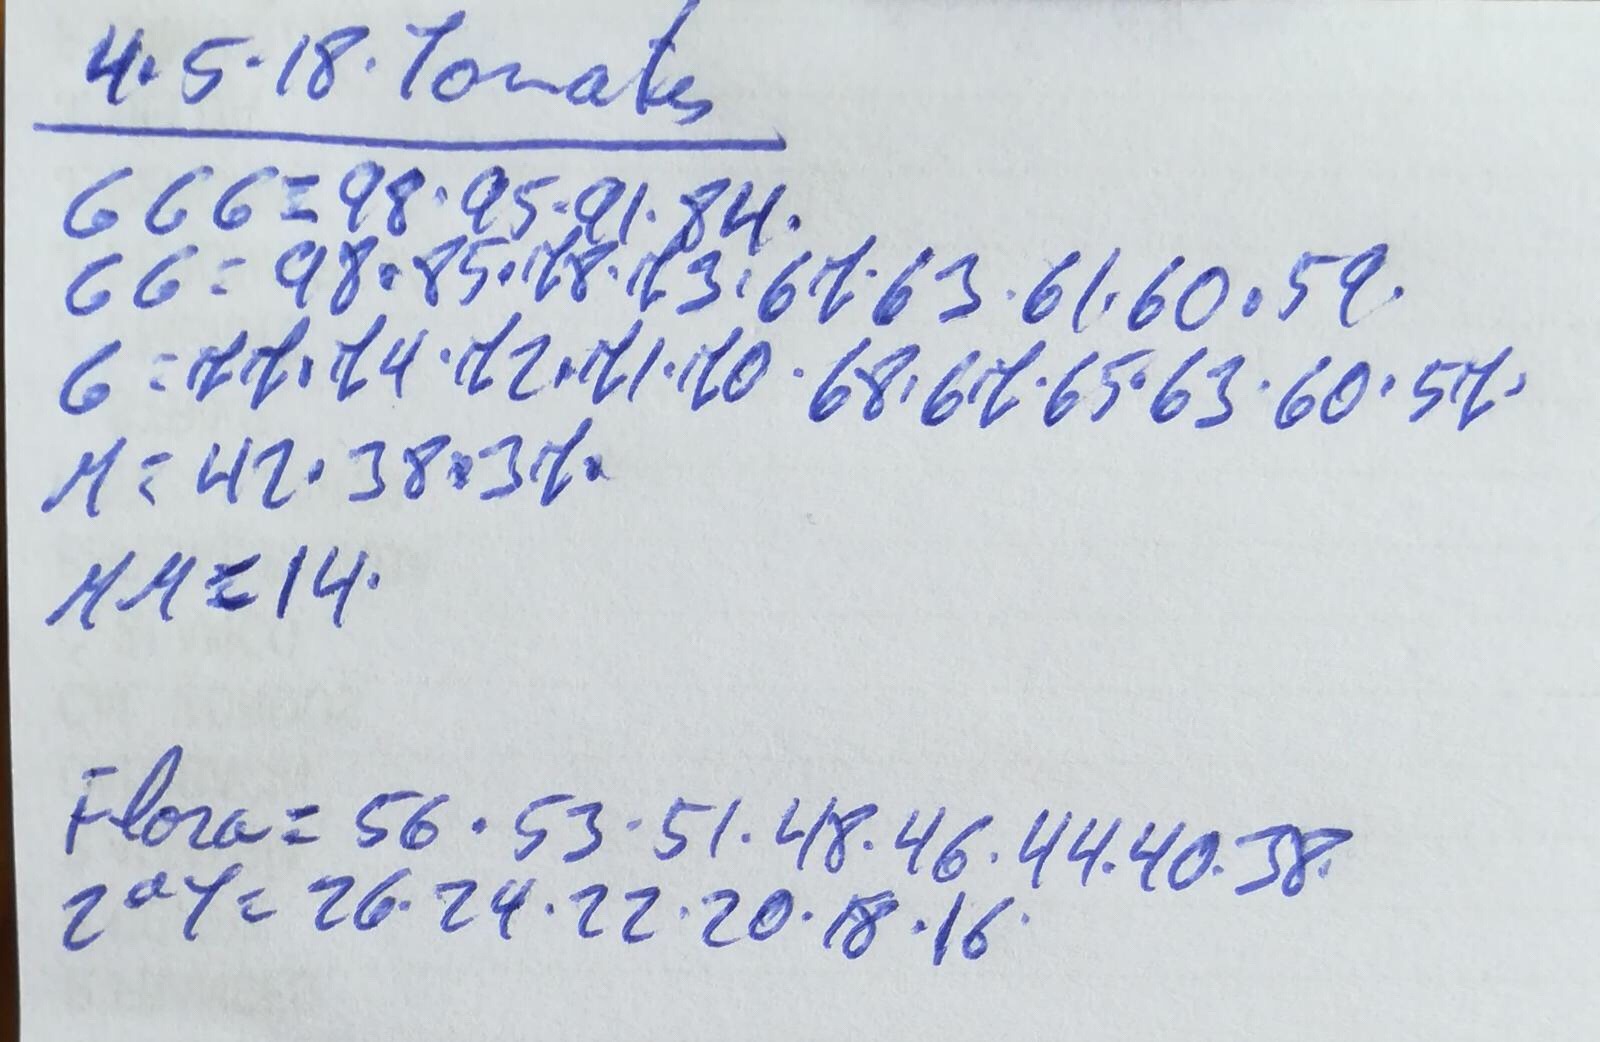 4.5.18. Tomates
GGG=98.95.91.84.
GG=98.85.78.73.67.63.61.60.59.
G=77.74.72.71.70.68.67.65.63.60.57.
M=42.38.37.
MM=14.
Flora=56.53.51.48.46.44.40.38.
2ªY=26.24.22.20.18.16.